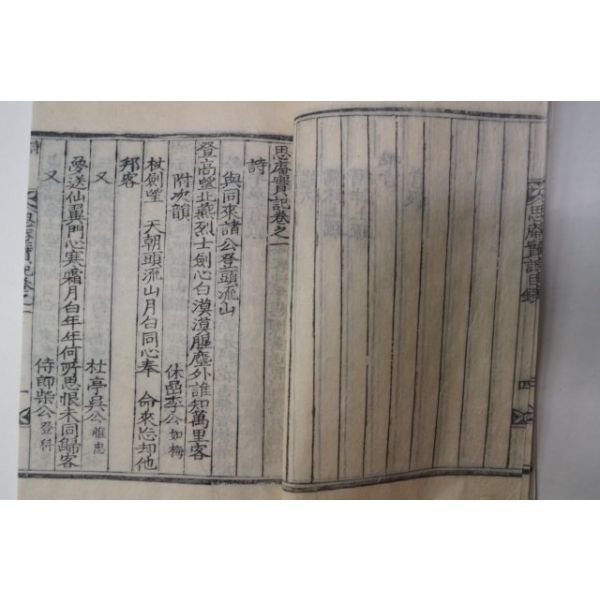 思庵實記卷之一
詩
與同來諸公登頭流山
登高望北燕烈士劍心白漠漠腥塵外誰知萬里客
附次韻
休嵒李公如梅
杖劍望 天朝頭流山月白同心奉 命來忘却他
邦客
又
杜亭吳公惟忠
夢送仙翼門心寒霜月白年年何所思恨未同歸客
又
侍郎柴公登科
思庵實記卷之一
思庵實記目錄
四